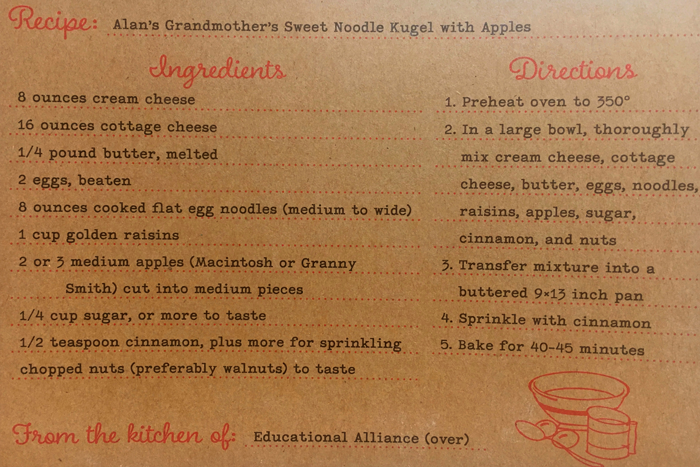 Recipe: Alan's Grandmother's Sweet Noodle Kugel with Apples
Ingredients
8 ounces cream cheese
16 ounces cottage cheese
1/4 pound butter, melted
2 eggs, beaten
8 ounces cooked flat egg noodles (medium to wide)
1 cup golden raisins
2 or 3 medium apples (Macintosh or Granny
Smith) cut into medium pieces
1/4 cup sugar, or more to taste
1/2 teaspoon cinnamon, plus more for sprinkling
chopped nuts (preferably walnuts) to taste
Directions
1. Preheat oven to 350°
2. In a large bowl, thoroughly
mix cream cheese, cottage
cheese, butter, eggs, noodles,
raisins, apples, sugar,
cinnamon, and nuts
3. Transfer mixture into a
buttered 9×13 inch pan
4. Sprinkle with cinnamon
5. Bake for 40-45 minutes
From the kitchen of: Educational Alliance (over)